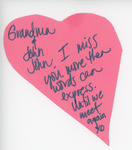 Grandma
&
John
John, I miss
you more than
words can
express.
Until we
meet
again
XO